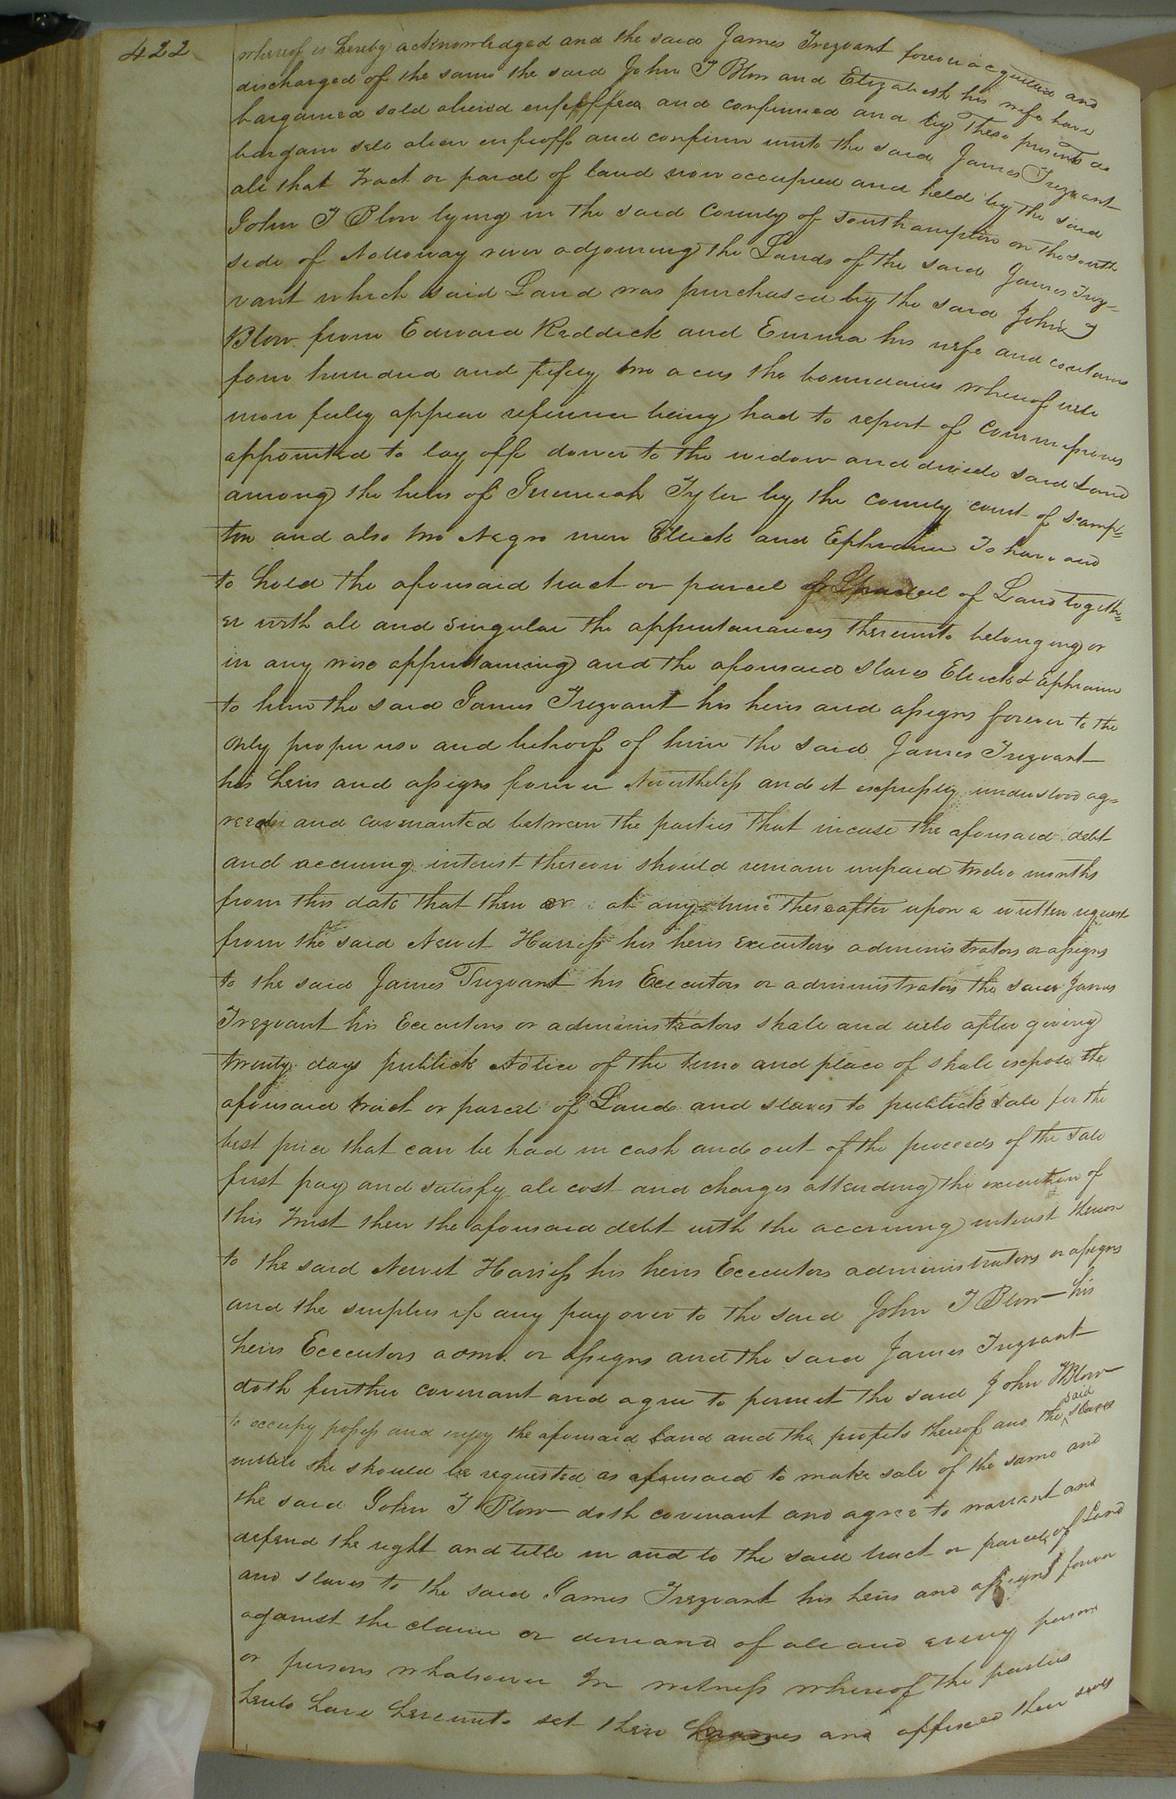 422
whereof is hereby acknowledged and the said James Trezvant forever acquitted and
discharged of the same the said John T Blow and Elizabeth his wife have
bargained sold aliend enfeoffed and confirmed and by These presents do
bargain sell alien enfeoff and confirm unto the said James Trezvant
all that Tract or parcel of land now occupied and held by the said
John T Blow lying in the said County of Southampton on the south
side of Nottoway river adjoining the Lands of the said James Trez-
vant which said Land was purchased by the said John T
Blow from Edward Riddick and Emma his wife and contains
four hundred and fifty two acres the boundaries whereof will
more fully appear reference being had to report of Commissioners
appointed to lay off dower to the widow and divide said Land
among the heirs of Jeremiah Tyler by the county court of Southamp-
ton and also two Negro men Elick and Ephraim To have and
to hold the aforesaid tract or parcel of Land togeth-
er with all and Singular the appurtenances thereunto belonging or
in any wise appertaining and the aforesaid slaves Elick & Ephraim
to him the said James Trezvant his heirs and assigns forever to the
only proper use and behoof of him the said James Trezvant
his heirs and assigns forever Nevertheless and it expressly understood ag-
reed and covenanted between the parties that incase the aforesaid debt
and accruing interest thereon should remain unpaid twelve months
from this date that then or at any time thereafter upon a written request
from the said Newit Harriss his heirs executors administrators or assigns
to the said James Trezvant his Executors or administrators the said James
Trezvant his Executors or administrators shall and will after giving
twenty days publick Notice of the time and place of shall expose the
aforesaid tract or parcel of Land and slaves to publick sale for the
best price that can be had in cash and out of the proceeds of the sale
first pay and satisfy all cost and charges attending the execution of
this Trust then the aforesaid debt with the accruing interest thereon
to the said Newit Harriss his heirs Executors administrators or assigns
and the surplus if any pay over to the said John T Blow his
heirs Executors adms. or assigns and the said James Trezvant
doth further covenant and agree to permit the said John T Blow
to occupy possess and enjoy the aforesaid Land and the profits thereof and the said slaves
untill he should be requested as aforesaid to make sale of the same and
the said John T Blow doth covenant and agree to warrant and
defend the right and title in and to the said tract or parcel of Land
and slaves to the said James Trezvant his heirs and assigns forever
against the claim or demand of all and every person
or persons whatsoever In witness whereof the parties
have hereunto set their hands and affixed their seals